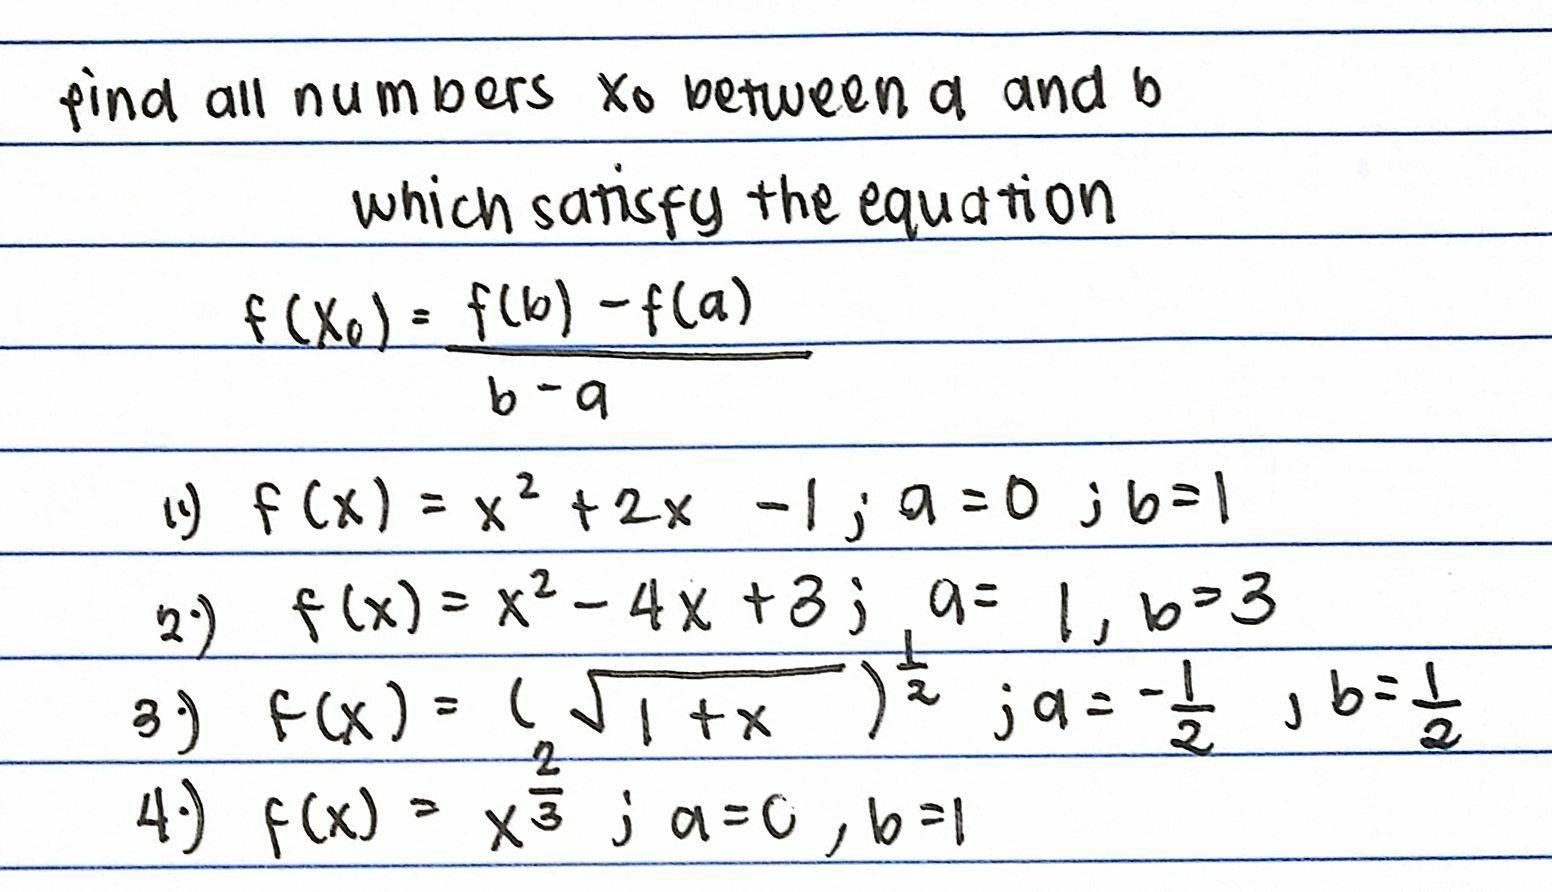 find all numbers x₀ between a and b
which satisfy the equation
f(x₀) = f(b) - f(a) / b - a
1.) f(x) = x² + 2x - 1 ; a = 0 ; b = 1
2.) f(x) = x² - 4x + 3 ; a = 1 , b = 3
3.) f(x) = (√(1 + x))^(1/2) ; a = -1/2 , b = 1/2
4.) f(x) = x^(2/3) ; a = 0 , b = 1